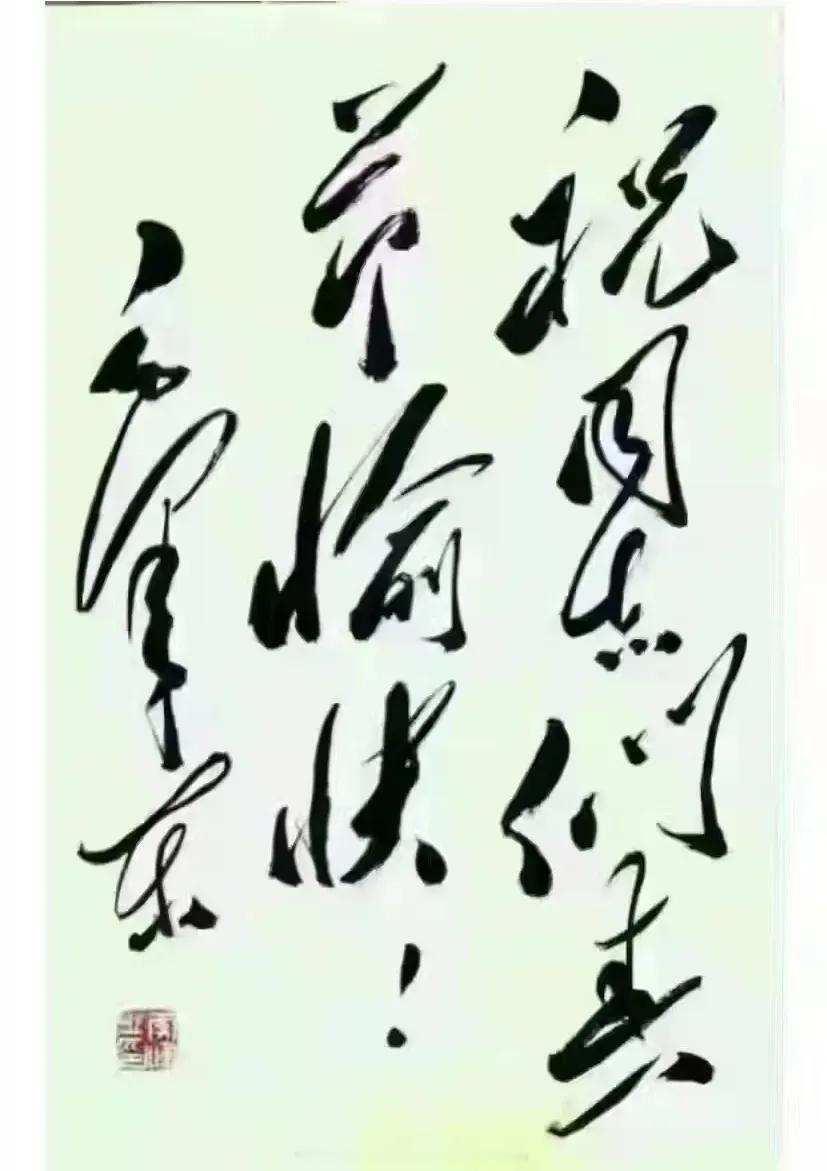 祝同志们春
节愉快!
毛泽东